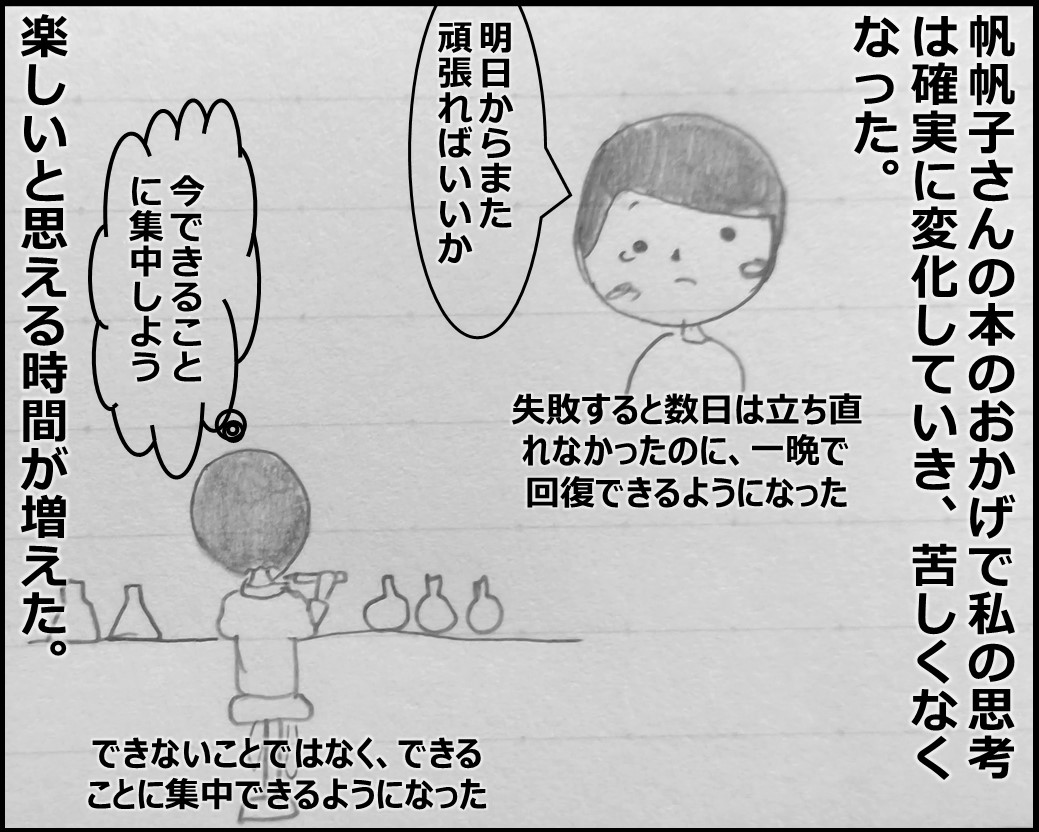 帆帆子さんの本のおかげで私の思考
は確実に変化していき、苦しくなく
なった。
明日からまた
頑張ればいいか
失敗すると数日は立ち直
れなかったのに、一晩で
回復できるようになった
今できること
に集中しよう
できないことではなく、できる
ことに集中できるようになった
楽しいと思える時間が増えた。